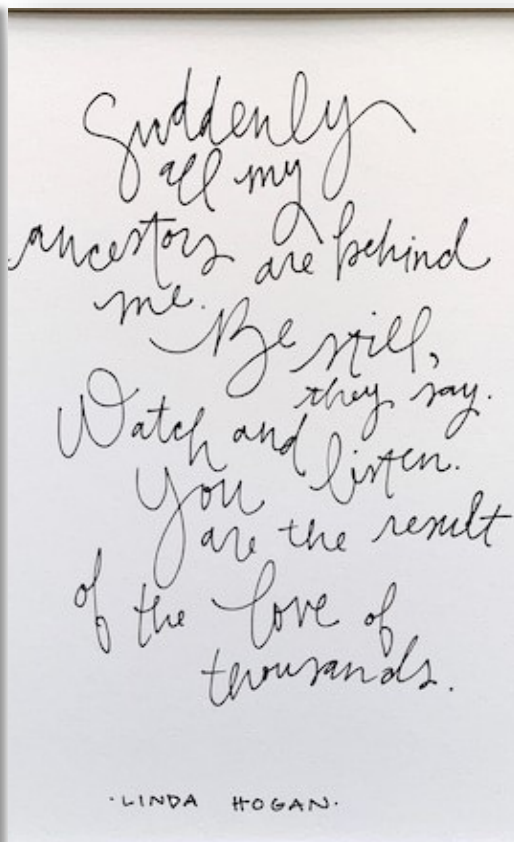 Suddenly
all my
ancestors are behind
me. Be still,
they say.
Watch and listen.
You are the result
of the love of
thousands.
·LINDA HOGAN·